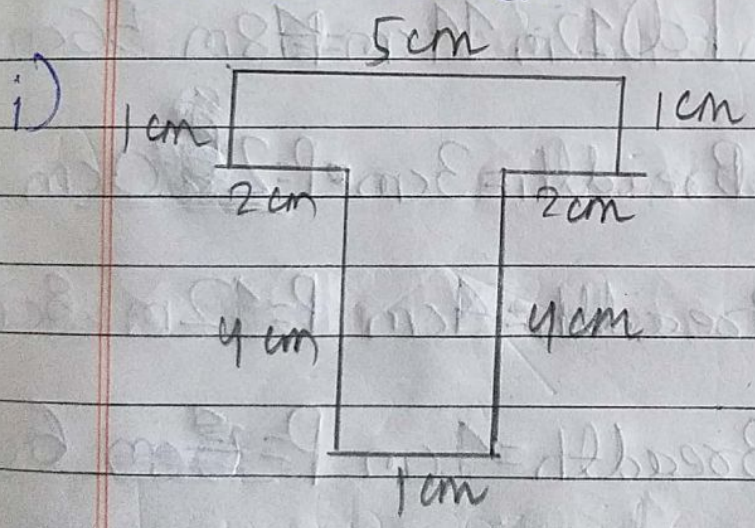 5cm
i)
1cm
1cm
2cm
2cm
4cm
4cm
1cm